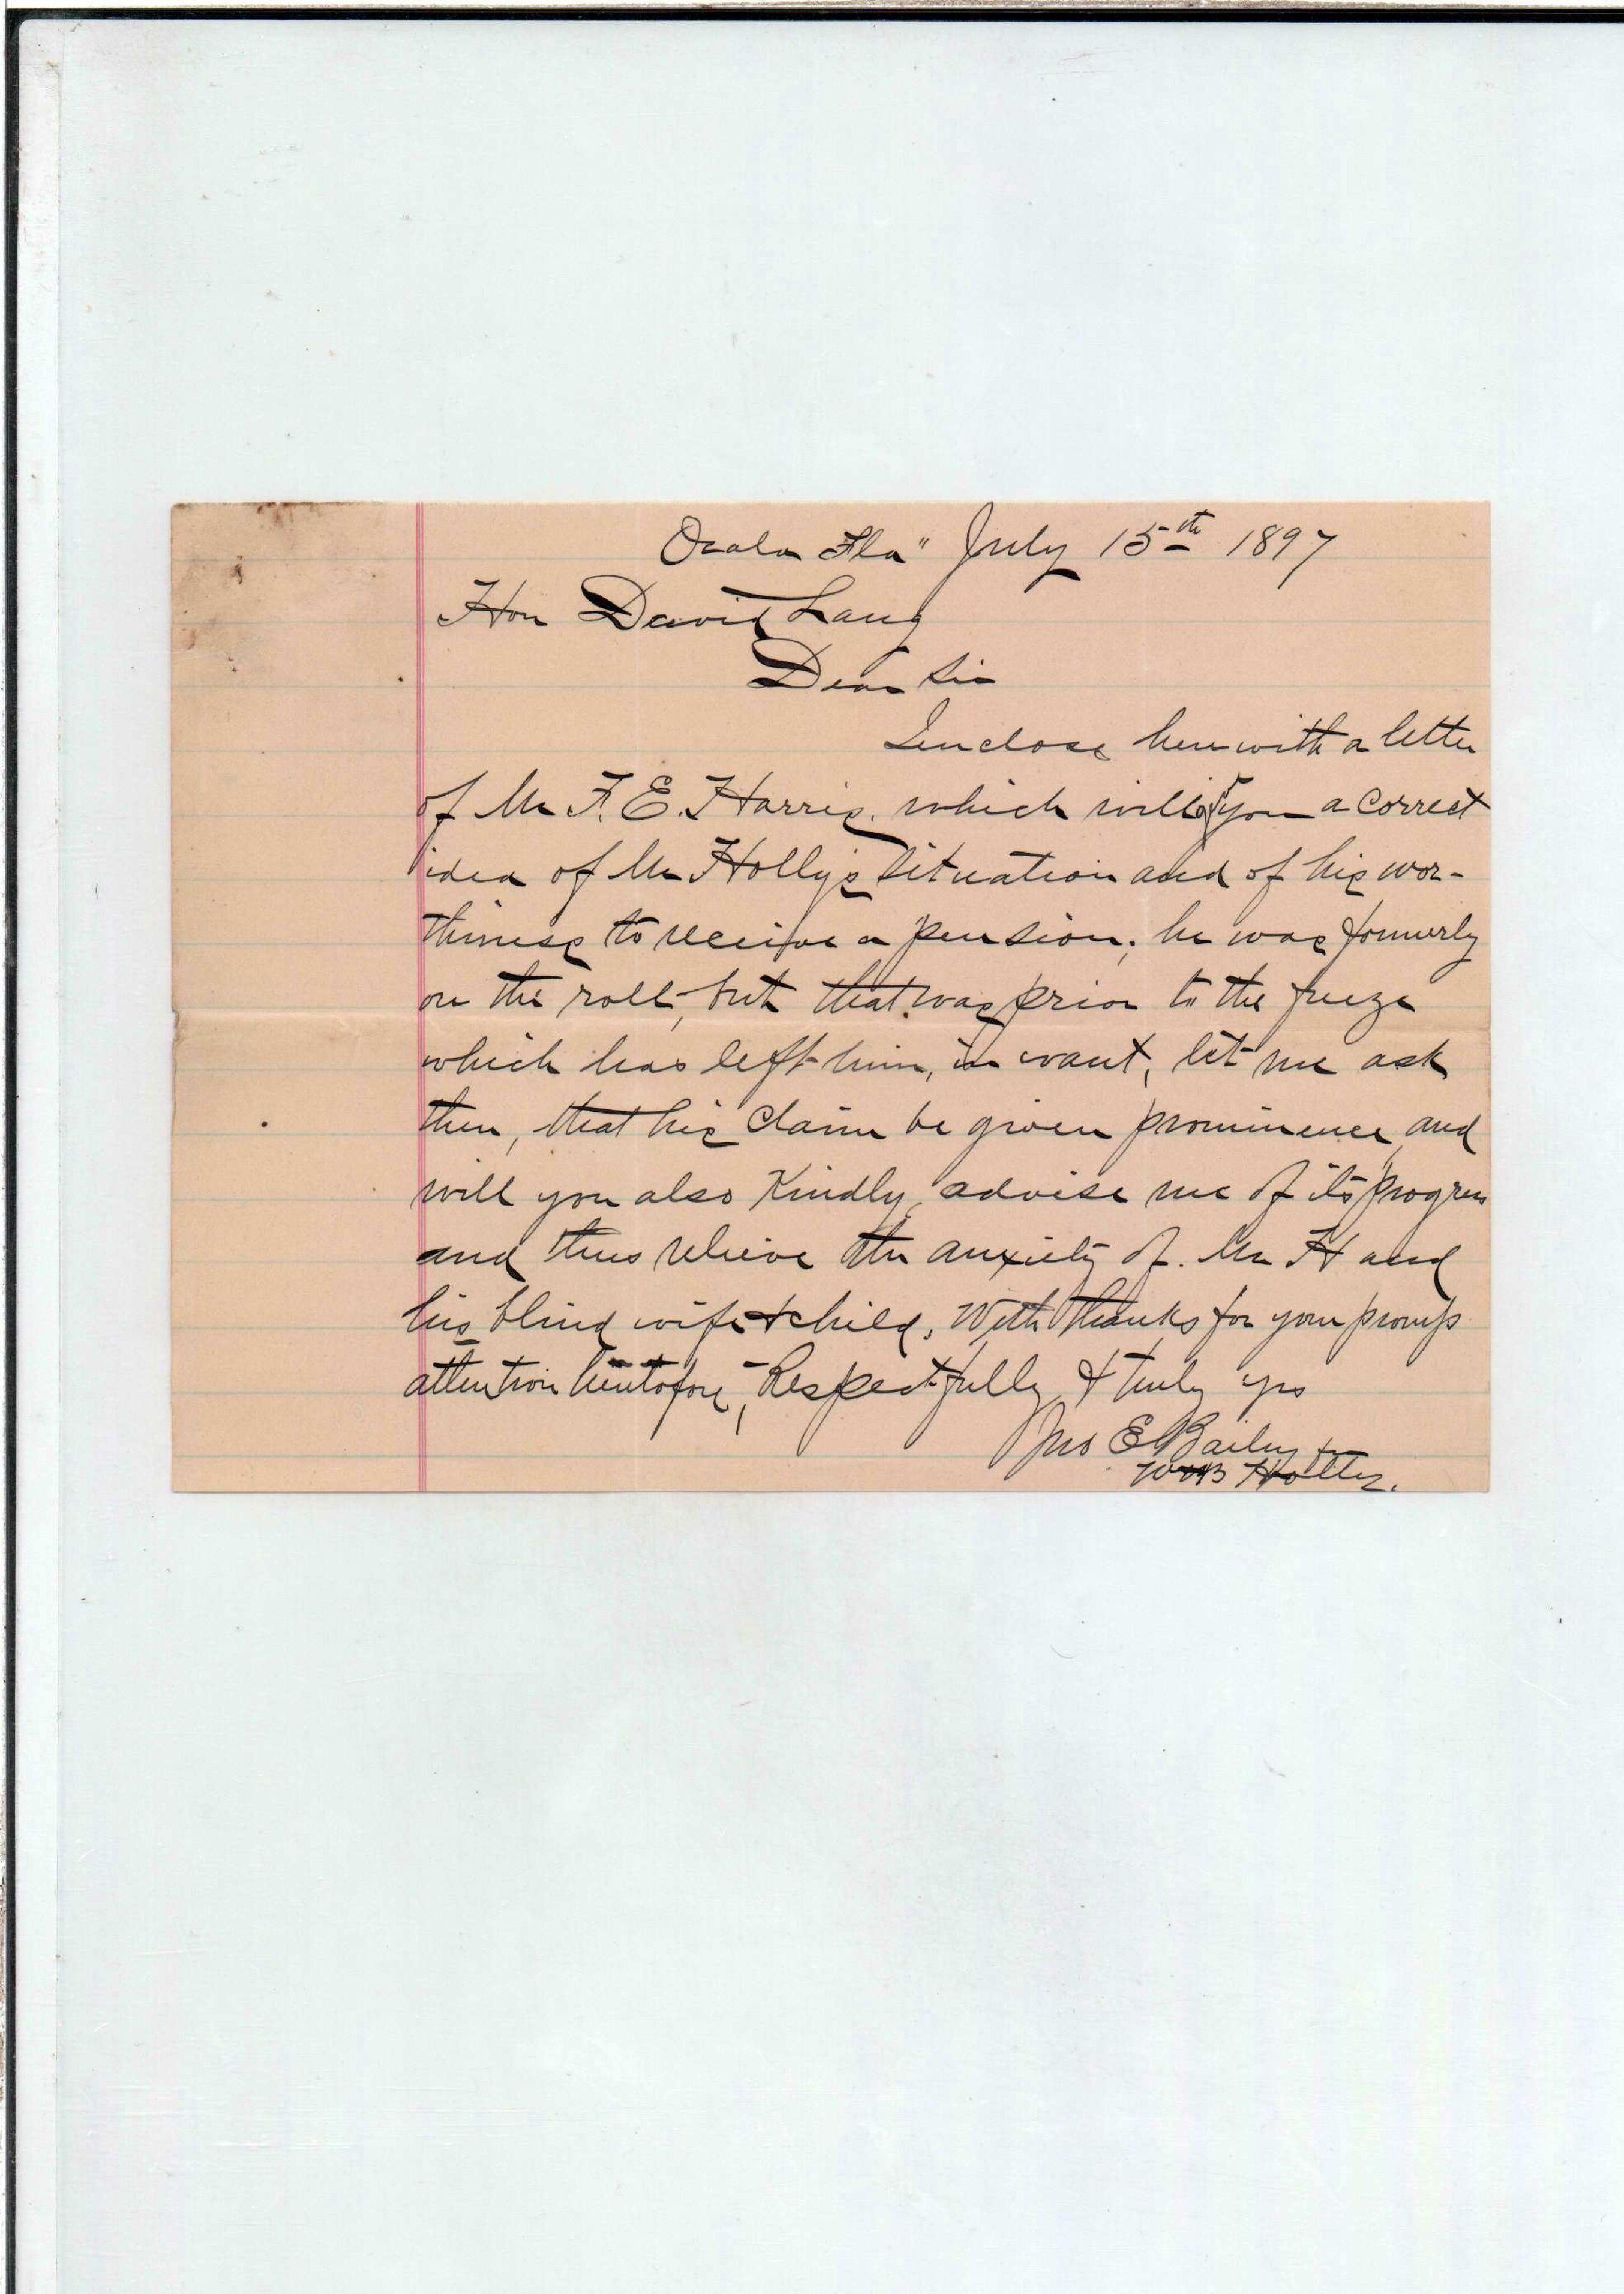 Ocala Fla" July 15th 1897
Hon David Lang
Dear Sir
I enclose herewith a letter
of Mr F. E. Harris. which will you a correct
idea of Mr Holly's situation and of his wor-
thiness to receive a pension; he was formerly
on the roll, but that was prior to the freeze
which has left him, in want, let me ask
then, that his claim be given prominence and
will you also Kindly advise me of its progress
and thus relieve the anxiety of. Mr H and
his blind wife & child, With thanks for your prompt
attention heretofore, Respectfully & truly yrs
Jno E Bailey for
Holly.